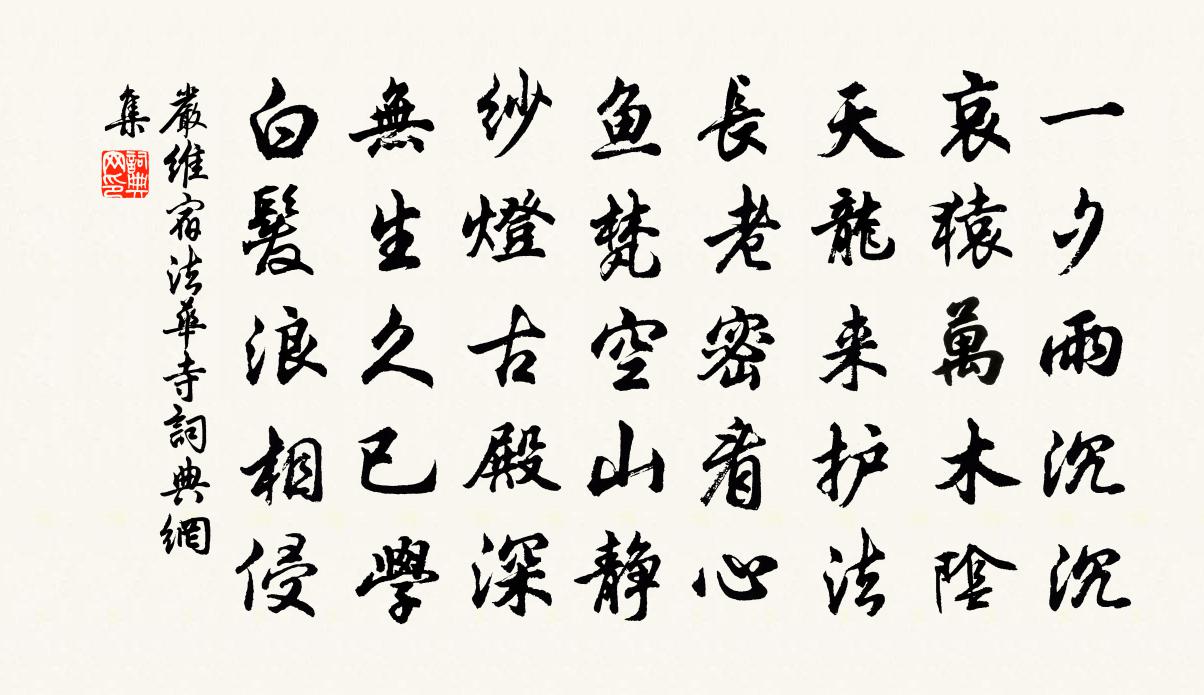 一夕雨沉沉
哀猿萬木陰
天龍来护法
長老密看心
魚梵空山静
紗燈古殿深
無生久已學
白髮浪相侵
嚴維宿法華寺詞典網
集
詞典
网印